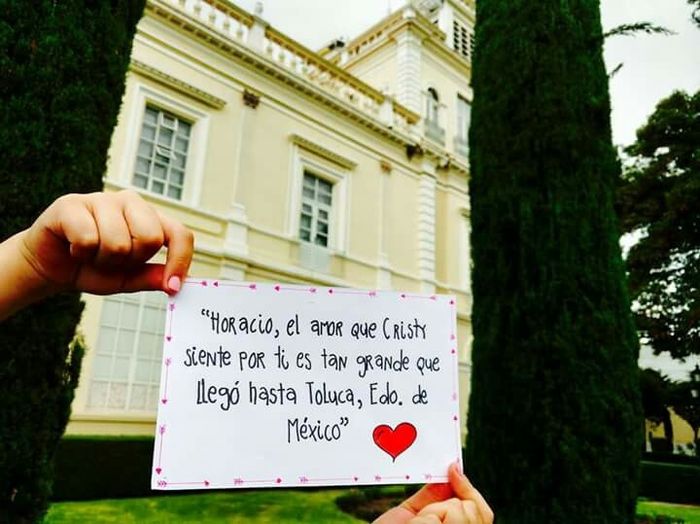 "Horacio, el amor que Cristy
siente por ti es tan grande que
llegó hasta Toluca, Edo. de
México"